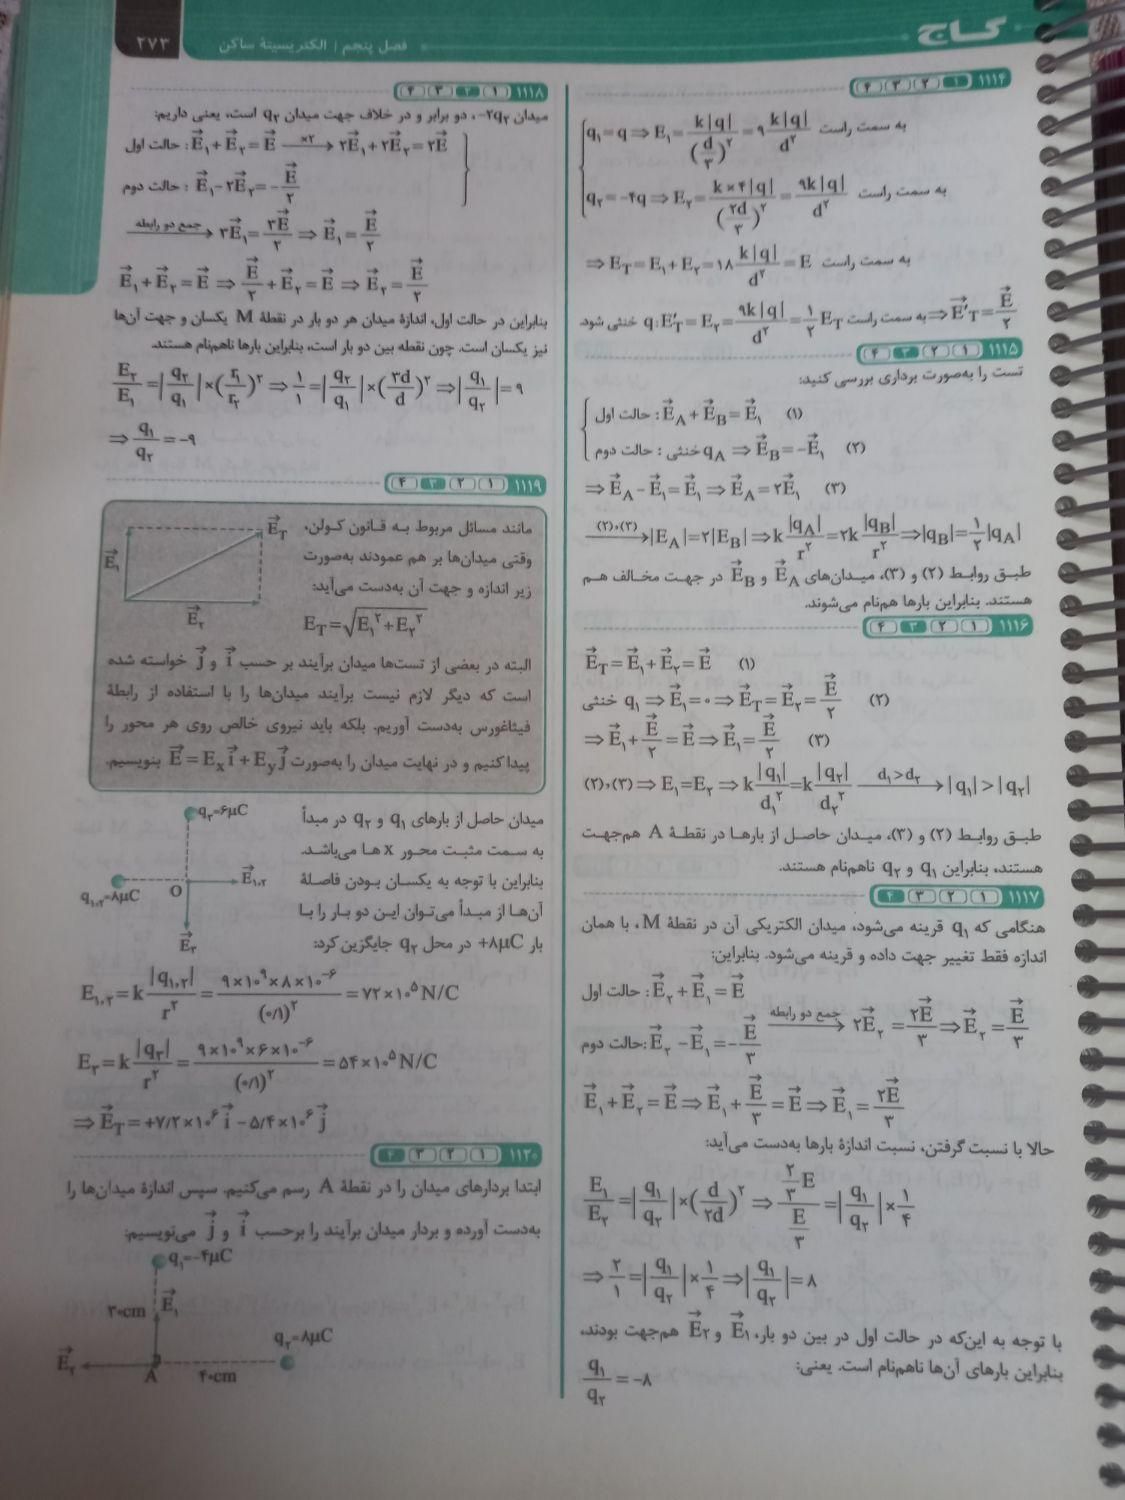 گاج
فصل پنجم | الکتریسیتهٔ ساکن
۲۷۳
۱۱۱۴ ۱ ۲ ۳ ۴
q₁ = q ⇒ E₁ = k|q| / (d/۳)² = ۹ k|q| / d² به سمت راست
q₂ = −۴q ⇒ E₂ = k×۴|q| / (۲d/۳)² = ۹k|q| / d² به سمت راست
⇒ E_T = E₁ + E₂ = ۱۸ k|q| / d² = E به سمت راست
q خنثی شود: E′_T = E₂ = ۹k|q| / d² = ۱/۲ E_T به سمت راست ⇒ E⃗′_T = E⃗/۲
۱۱۱۵ ۱ ۲ ۳ ۴
تست را به‌صورت برداری بررسی کنید:
حالت اول : E⃗_A + E⃗_B = E⃗₁ (۱)
حالت دوم : خنثی q_A ⇒ E⃗_B = −E⃗₁ (۲)
⇒ E⃗_A − E⃗₁ = E⃗₁ ⇒ E⃗_A = ۲E⃗₁ (۳)
(۲)،(۳) → |E_A| = ۲|E_B| ⇒ k |q_A| / r² = ۲k |q_B| / r² ⇒ |q_B| = ۱/۲ |q_A|
طبق روابط (۲) و (۳)، میدان‌های E⃗_A و E⃗_B در جهت مخالف هم
هستند. بنابراین بارها هم‌نام می‌شوند.
۱۱۱۶ ۱ ۲ ۳ ۴
E⃗_T = E⃗₁ + E⃗₂ = E⃗ (۱)
خنثی q₁ ⇒ E⃗₁ = ۰ ⇒ E⃗_T = E⃗₂ = E⃗/۲ (۲)
⇒ E⃗₁ + E⃗/۲ = E⃗ ⇒ E⃗₁ = E⃗/۲ (۳)
(۲)،(۳) ⇒ E₁ = E₂ ⇒ k |q₁| / d₁² = k |q₂| / d₂² d₁ > d₂ → |q₁| > |q₂|
طبق روابط (۲) و (۳)، میدان حاصل از بارها در نقطهٔ A هم‌جهت
هستند، بنابراین q₁ و q₂ ناهم‌نام هستند.
۱۱۱۷ ۱ ۲ ۳ ۴
هنگامی که q₁ قرینه می‌شود، میدان الکتریکی آن در نقطهٔ M، با همان
اندازه فقط تغییر جهت داده و قرینه می‌شود. بنابراین:
حالت اول : E⃗₂ + E⃗₁ = E⃗
حالت دوم: E⃗₂ − E⃗₁ = −E⃗/۳ جمع دو رابطه → ۲E⃗₂ = ۲E⃗/۳ ⇒ E⃗₂ = E⃗/۳
E⃗₁ + E⃗₂ = E⃗ ⇒ E⃗₁ + E⃗/۳ = E⃗ ⇒ E⃗₁ = ۲E⃗/۳
حالا با نسبت گرفتن، نسبت اندازهٔ بارها به‌دست می‌آید:
E₁/E₂ = |q₁/q₂| × (d/۲d)² ⇒ (۲/۳ E) / (E/۳) = |q₁/q₂| × ۱/۴
⇒ ۲/۱ = |q₁/q₂| × ۱/۴ ⇒ |q₁/q₂| = ۸
با توجه به این‌که در حالت اول در بین دو بار، E⃗₁ و E⃗₂ هم‌جهت بودند،
بنابراین بارهای آن‌ها ناهم‌نام است. یعنی: q₁/q₂ = −۸
۱۱۱۸ ۱ ۲ ۳ ۴
میدان −۲q₂، دو برابر و در خلاف جهت میدان q₂ است، یعنی داریم:
حالت اول : E⃗₁ + E⃗₂ = E⃗ ×۲ → ۲E⃗₁ + ۲E⃗₂ = ۲E⃗
حالت دوم : E⃗₁ − ۲E⃗₂ = −E⃗/۲
جمع دو رابطه → ۳E⃗₁ = ۳E⃗/۲ ⇒ E⃗₁ = E⃗/۲
E⃗₁ + E⃗₂ = E⃗ ⇒ E⃗/۲ + E⃗₂ = E⃗ ⇒ E⃗₂ = E⃗/۲
بنابراین در حالت اول، اندازهٔ میدان هر دو بار در نقطهٔ M یکسان و جهت آن‌ها
نیز یکسان است. چون نقطه بین دو بار است، بنابراین بارها ناهم‌نام هستند.
E₂/E₁ = |q₂/q₁| × (r₁/r₂)² ⇒ ۱/۱ = |q₂/q₁| × (۳d/d)² ⇒ |q₁/q₂| = ۹
⇒ q₁/q₂ = −۹
۱۱۱۹ ۱ ۲ ۳ ۴
مانند مسائل مربوط به قانون کولن،
وقتی میدان‌ها بر هم عمودند به‌صورت
زیر اندازه و جهت آن به‌دست می‌آید:
E_T = √(E₁² + E₂²)
E⃗₁
E⃗_T
E⃗₂
البته در بعضی از تست‌ها میدان برآیند بر حسب i⃗ و j⃗ خواسته شده
است که دیگر لازم نیست برآیند میدان‌ها را با استفاده از رابطهٔ
فیثاغورس به‌دست آوریم. بلکه باید نیروی خالص روی هر محور را
پیدا کنیم و در نهایت میدان را به‌صورت E⃗ = E_x i⃗ + E_y j⃗ بنویسیم.
میدان حاصل از بارهای q₁ و q₂ در مبدأ
به سمت مثبت محور x ها می‌باشد.
بنابراین با توجه به یکسان بودن فاصلهٔ
آن‌ها از مبدأ می‌توان این دو بار را با
بار +۸μC در محل q₂ جایگزین کرد:
q₃=۶μC
q₁,₂=۸μC
O
E⃗₁,₂
E⃗₃
E₁,₂ = k |q₁,₂| / r² = ۹×۱۰⁹×۸×۱۰⁻⁶ / (۰/۱)² = ۷۲×۱۰⁵ N/C
E₃ = k |q₃| / r² = ۹×۱۰⁹×۶×۱۰⁻⁶ / (۰/۱)² = ۵۴×۱۰⁵ N/C
⇒ E⃗_T = +۷/۲×۱۰⁶ i⃗ − ۵/۴×۱۰⁶ j⃗
۱۱۲۰ ۱ ۲ ۳ ۴
ابتدا بردارهای میدان را در نقطهٔ A رسم می‌کنیم. سپس اندازهٔ میدان‌ها را
به‌دست آورده و بردار میدان برآیند را برحسب i⃗ و j⃗ می‌نویسیم:
q₁=−۴μC
۳۰cm
E⃗₁
q₂=۸μC
E⃗₂
A
۴۰cm